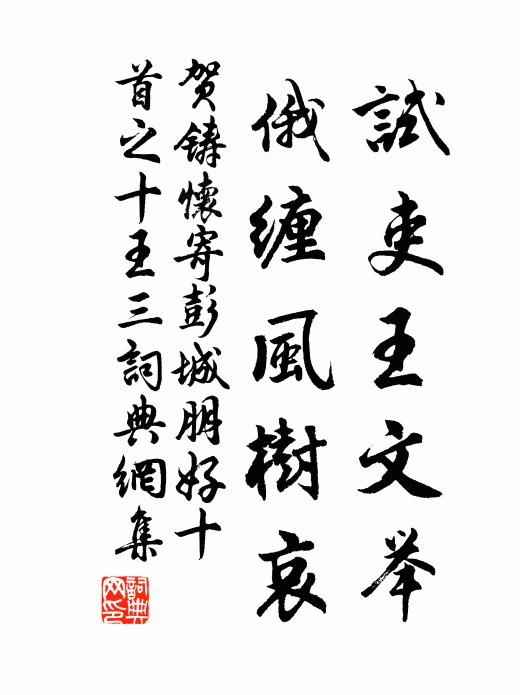 試吏王文举
俄缠風樹哀
贺鑄懷寄彭城朋好十
首之十王三詞典網集
詞典網印